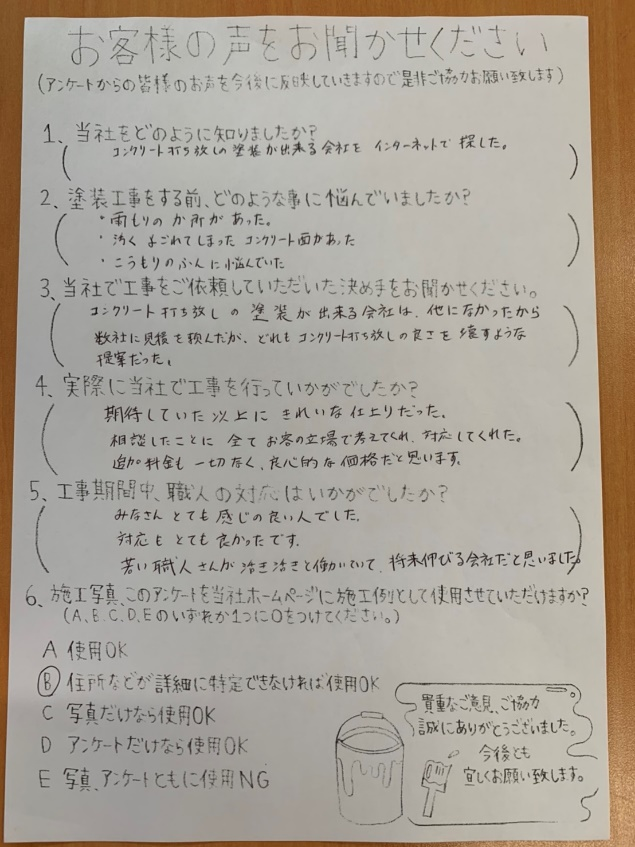 お客様の声をお聞かせください
(アンケートからの皆様のお声を今後に反映していきますので是非ご協力お願い致します)
1、当社をどのように知りましたか?
コンクリート打ち放しの塗装が出来る会社を インターネットで 探した。
2、塗装工事をする前、どのような事に悩んでいましたか?
・雨もりの か所が あった。
・汚く よごれてしまった コンクリート面があった
・こうもりの ふんに 悩んでいた
3、当社で工事をご依頼していただいた決め手をお聞かせください。
コンクリート打ち放し の 塗装が 出来る会社は、他になかったから
数社に見積を頼んだが、どれも コンクリート打ち放しの良さを 壊すような
提案だった。
4、実際に当社で工事を行っていかがでしたか?
期待していた以上に きれいな 仕上りだった。
相談したことに 全て お客の立場で考えてくれ、対応してくれた。
追加料金も 一切なく、良心的な 価格だと思います。
5、工事期間中、職人の対応はいかがでしたか?
みなさん とても 感じの良い人でした。
対応も とても 良かったです。
若い職人さんが 活き活きと働いていて、将来伸びる会社だと思いました。
6、施工写真、このアンケートを当社ホームページに施工例として使用させていただけますか?
(A、B、C、D、Eのいずれか1つに○をつけてください。)
A 使用OK
B 住所などが詳細に特定できなければ使用OK
C 写真だけなら使用OK
D アンケートだけなら使用OK
E 写真、アンケートともに使用NG
貴重なご意見、ご協力
誠にありがとうございました。
今後とも
宜しくお願い致します。